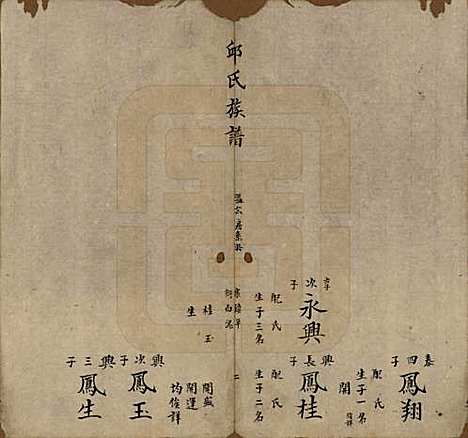 邱氏族譜
二
次子
永興
配氏
生子三名
泰四子
鳳翔
配氏
生子一名
開
興長子
鳳桂
配氏
生子二名
桂玉
生
興次子
鳳玉
開盛
開運
均俟詳
興三子
鳳生